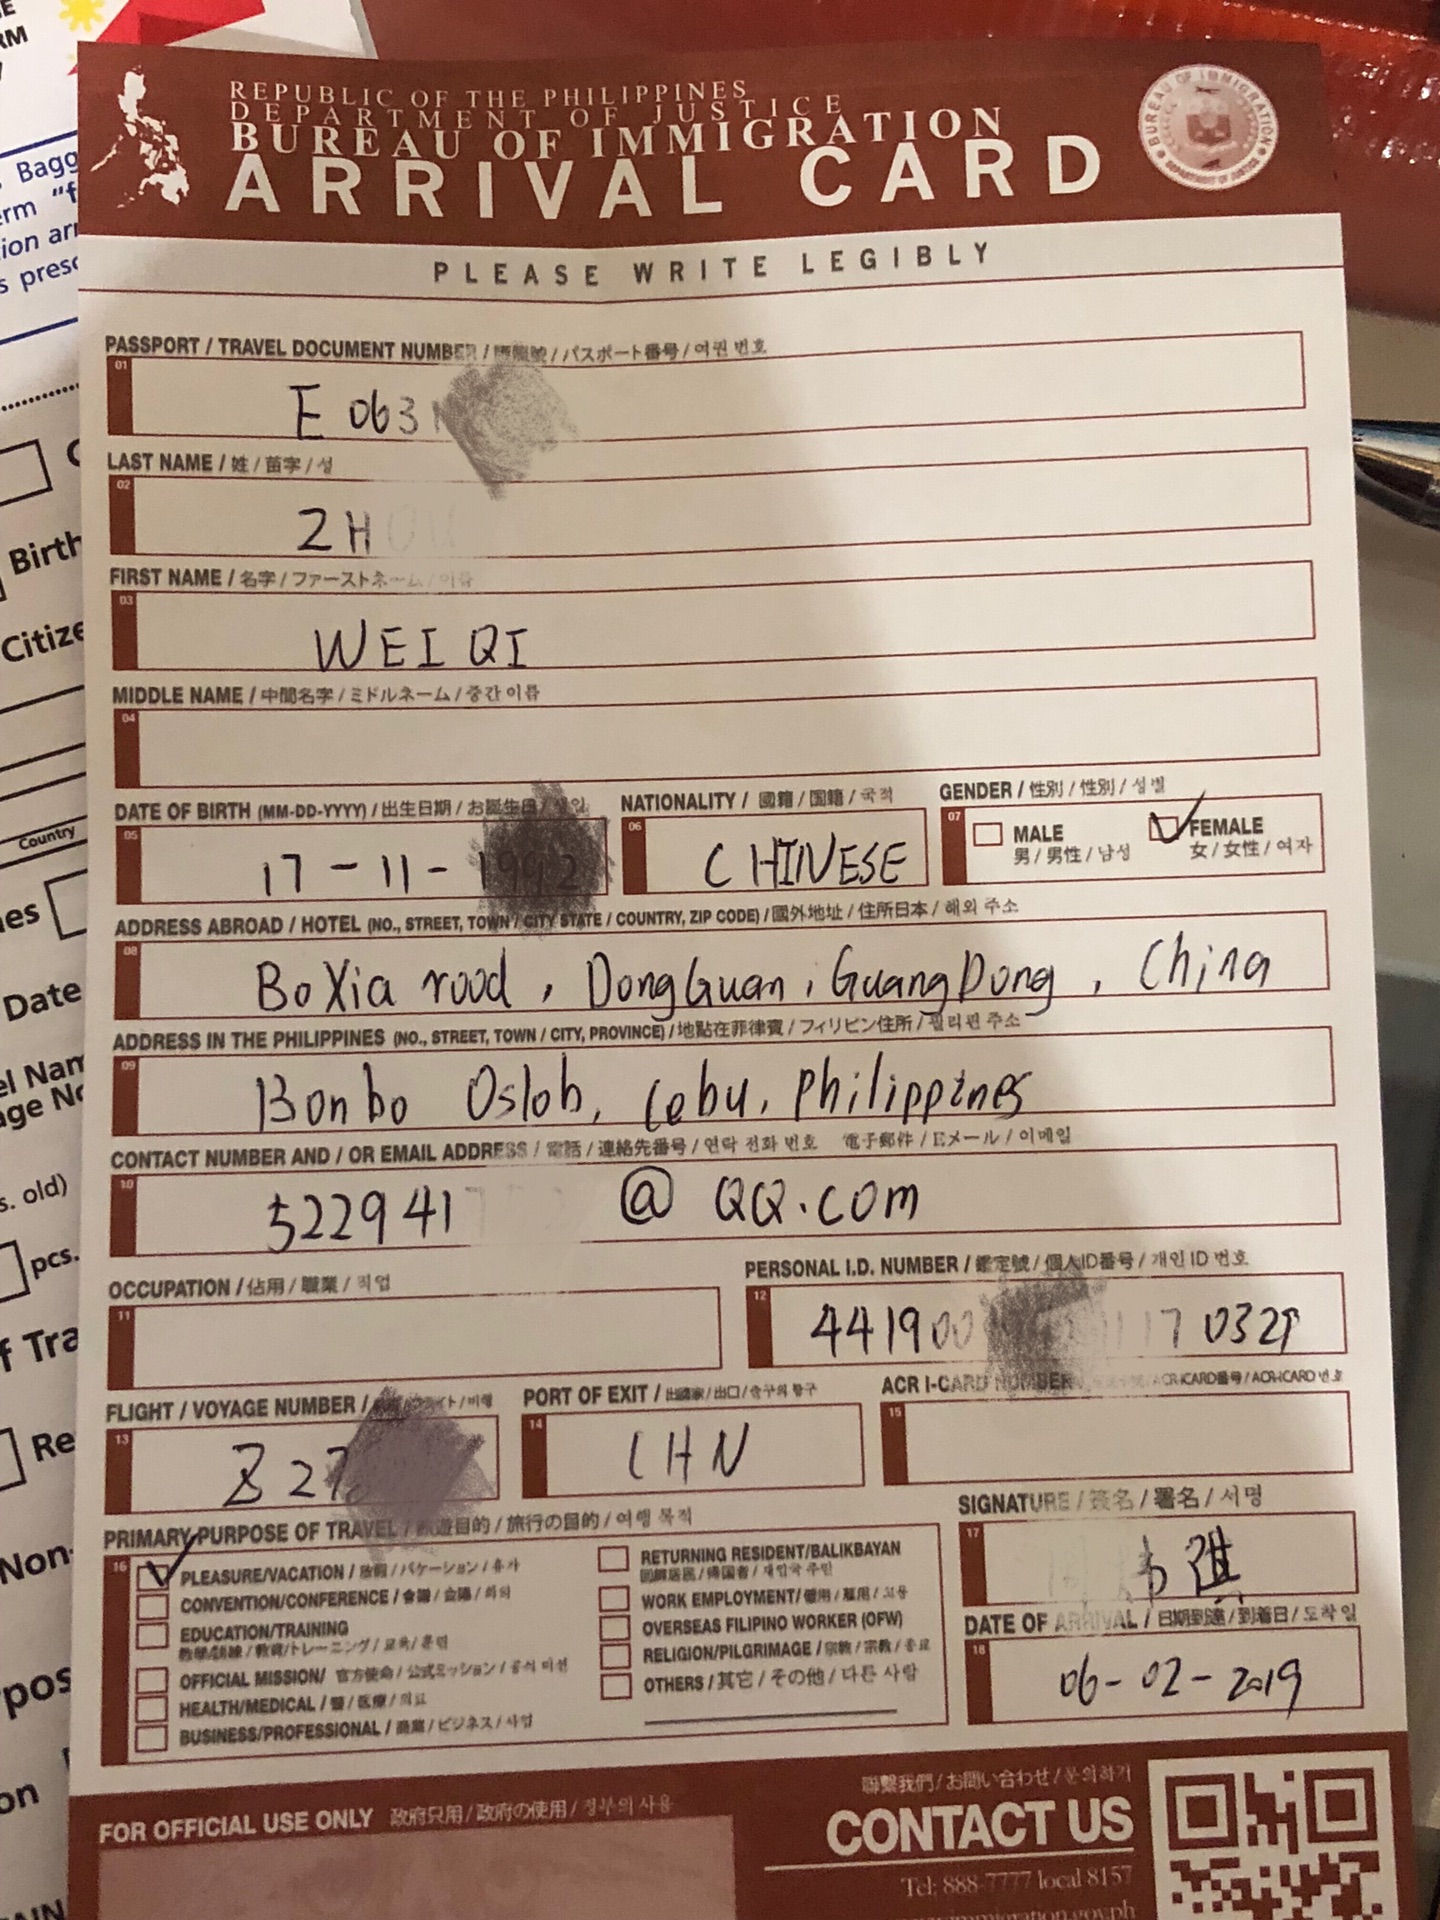 REPUBLIC OF THE PHILIPPINES
DEPARTMENT OF JUSTICE
BUREAU OF IMMIGRATION
ARRIVAL CARD
PLEASE WRITE LEGIBLY
PASSPORT / TRAVEL DOCUMENT NUMBER / パスポート番号 / 여권 번호
01
E 063
LAST NAME / 姓 / 苗字 / 성
02
ZH
FIRST NAME / 名字 / ファーストネーム / 이름
03
WEI QI
MIDDLE NAME / 中間名字 / ミドルネーム / 중간 이름
04
DATE OF BIRTH (MM-DD-YYYY) / 出生日期 / お誕生日
05
17 - 11 -
NATIONALITY / 國籍 / 国籍 / 국적
06
CHINESE
GENDER / 性別 / 性別 / 성별
07
MALE
男 / 男性 / 남성
FEMALE
女 / 女性 / 여자
ADDRESS ABROAD / HOTEL (NO., STREET, TOWN / CITY STATE / COUNTRY, ZIP CODE) / 國外地址 / 住所日本 / 해외 주소
08
BoXia rood, DongGuan, GuangDong, China
ADDRESS IN THE PHILIPPINES (NO., STREET, TOWN / CITY, PROVINCE) / 地點在菲律賓 / フィリピン住所 / 필리핀 주소
09
Bonbo Oslob, Cebu, Philippines
CONTACT NUMBER AND / OR EMAIL ADDRESS / 電話 / 連絡先番号 / 연락 전화 번호 電子郵件 / Eメール / 이메일
10
522941 @ QQ.com
OCCUPATION / 佔用 / 職業 / 직업
11
PERSONAL I.D. NUMBER / 鑑定號 / 個人ID番号 / 개인 ID 번호
12
441900 1117 032
FLIGHT / VOYAGE NUMBER /
13
Z27
PORT OF EXIT / 出口
14
CHN
ACR I-CARD NUMBER
15
PRIMARY PURPOSE OF TRAVEL / 旅遊目的 / 旅行の目的 / 여행 목적
16
PLEASURE/VACATION / 放假 / バケーション / 휴가
CONVENTION/CONFERENCE / 會議 / 会議 / 회의
EDUCATION/TRAINING
教學/訓練 / 教育/トレーニング / 교육 / 훈련
OFFICIAL MISSION/ 官方使命 / 公式ミッション / 공식 미션
HEALTH/MEDICAL / 醫 / 医療 / 의료
BUSINESS/PROFESSIONAL / 商業 / ビジネス / 사업
RETURNING RESIDENT/BALIKBAYAN
WORK EMPLOYMENT/ 僱用 / 雇用 / 고용
OVERSEAS FILIPINO WORKER (OFW)
RELIGION/PILGRIMAGE / 宗教 / 宗教 / 종교
OTHERS / 其它 / その他 / 다른 사람
SIGNATURE / 簽名 / 署名 / 서명
17
DATE OF ARRIVAL / 日期到達 / 到着日 / 도착일
18
06-02-2019
FOR OFFICIAL USE ONLY 政府只用 / 政府の使用 / 정부의 사용
聯繫我們 / お問い合わせ / 문의하기
CONTACT US
Tel: 888-7777 local 8157
immigration.gov.ph
Birth
Country
Date
pcs.
BUREAU OF IMMIGRATION